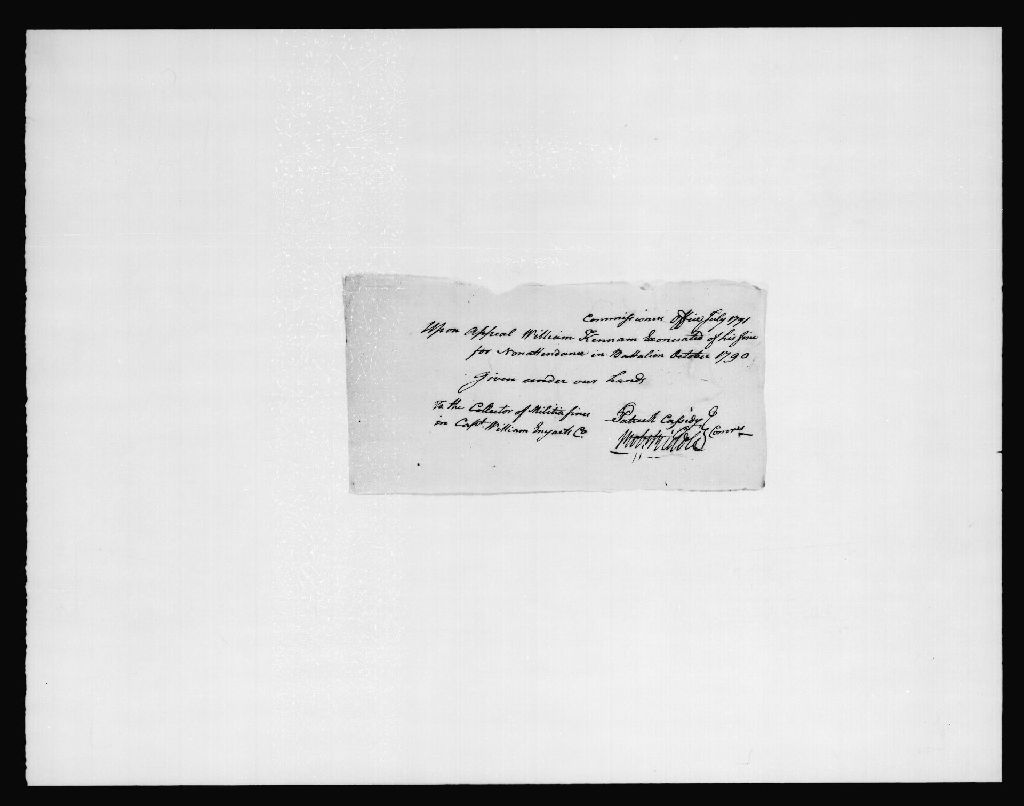 Commissioners Office July 1791
Upon Appeal William Kennam Exonerated of his fine
for Nonattendance in Battalion October 1790
Given under our hands
To the Collector of Militia fines
in Capt William Enyarts Co.
Patrick Cassidy
Comrs